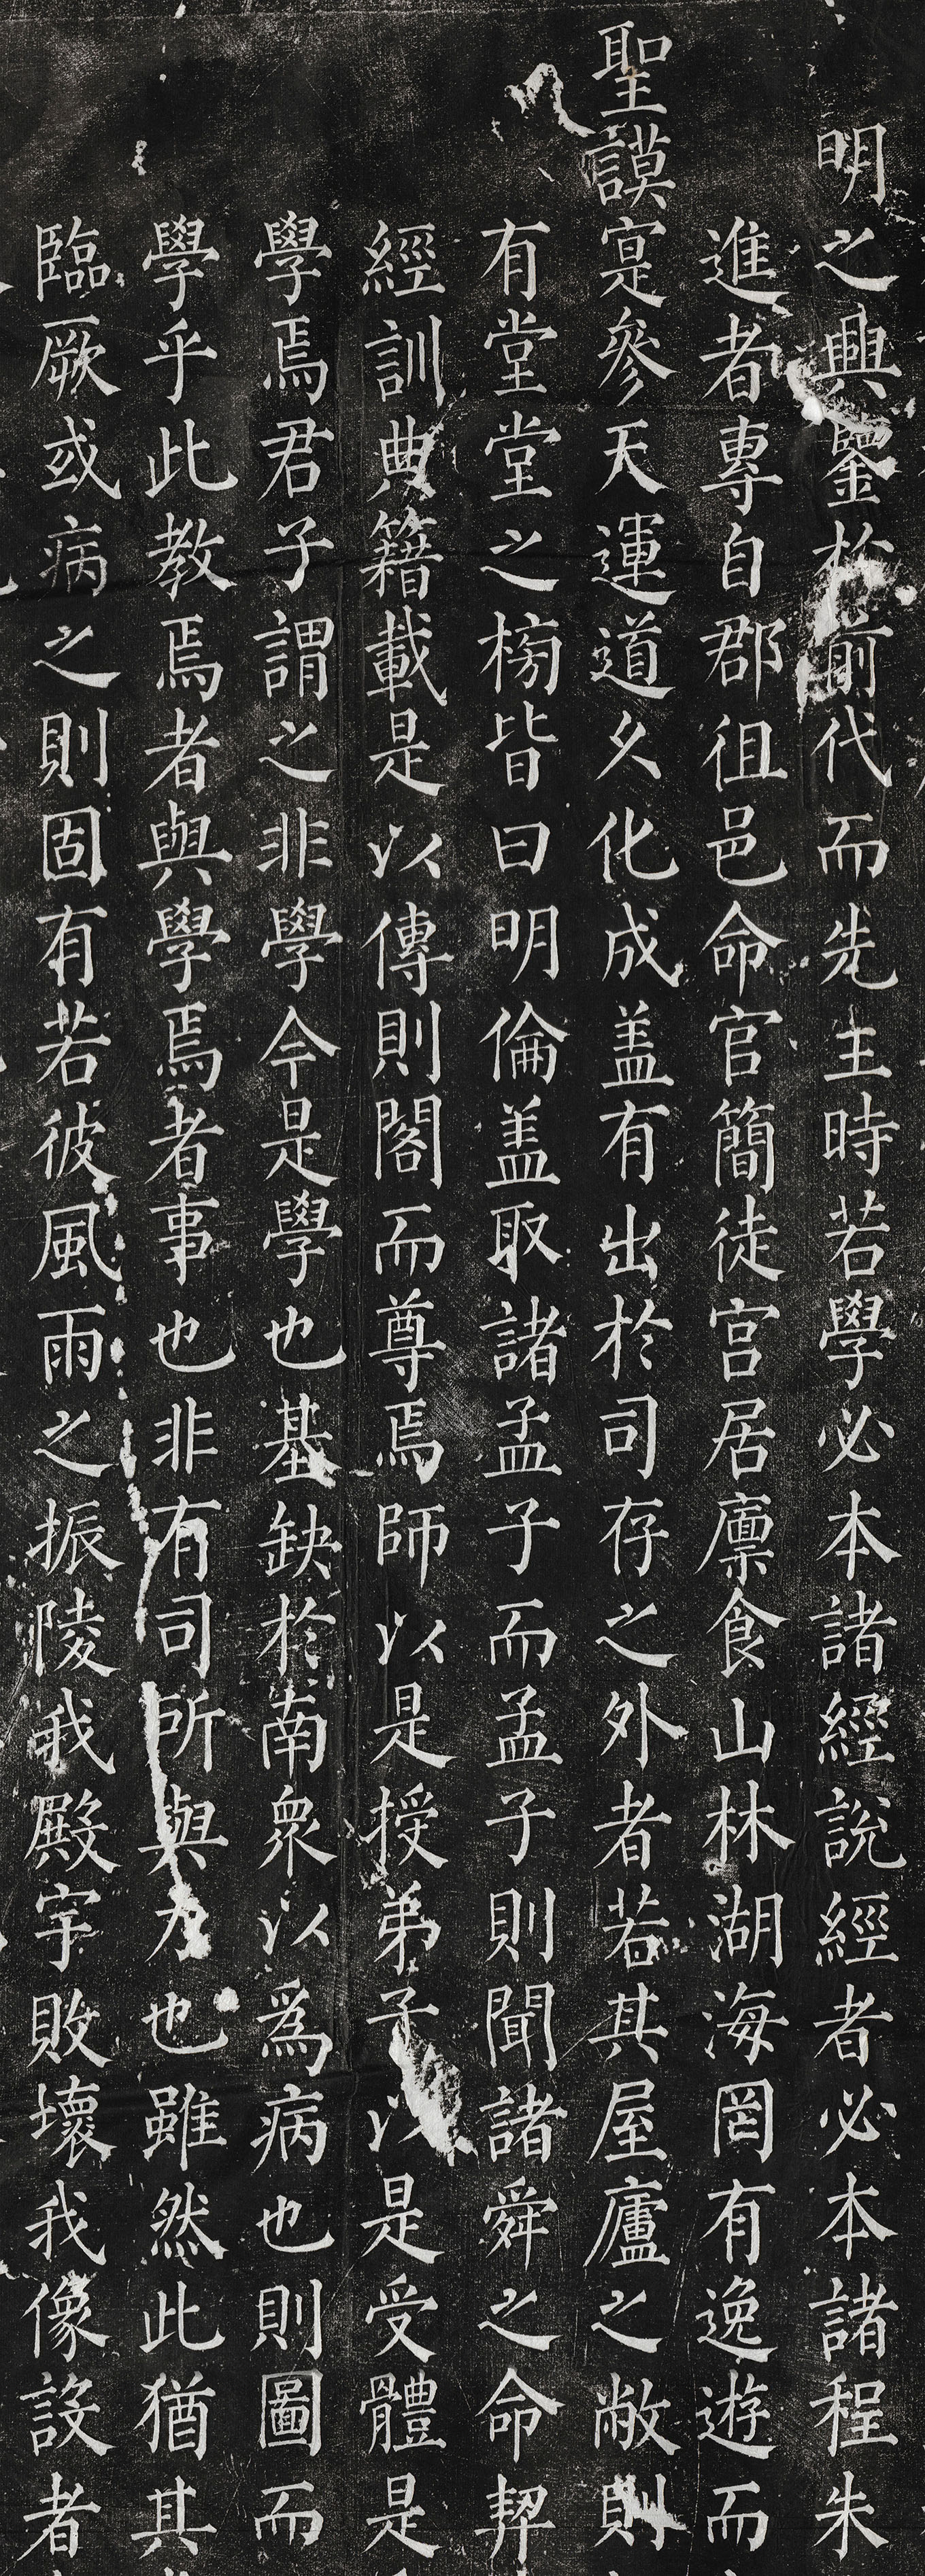 明之興鑒於前代而先主時若學必本諸經說經者必本諸程朱
進者專自郡徂邑命官簡徒宮居廩食山林湖海罔有逸遊而
聖謨寔參天運道久化成盖有出於司存之外者若其屋廬之敝則
有堂堂之榜皆曰明倫盖取諸孟子而孟子則聞諸舜之命契
經訓典籍載是以傳則閣而尊焉師以是授弟子以是受體是
學焉君子謂之非學今是學也基缺於南衆以為病也則圖而
學乎此教焉者與學焉者事也非有司所與力也雖然此猶其
臨厥或病之則固有若彼風雨之振陵我殿宇敗壞我像設者